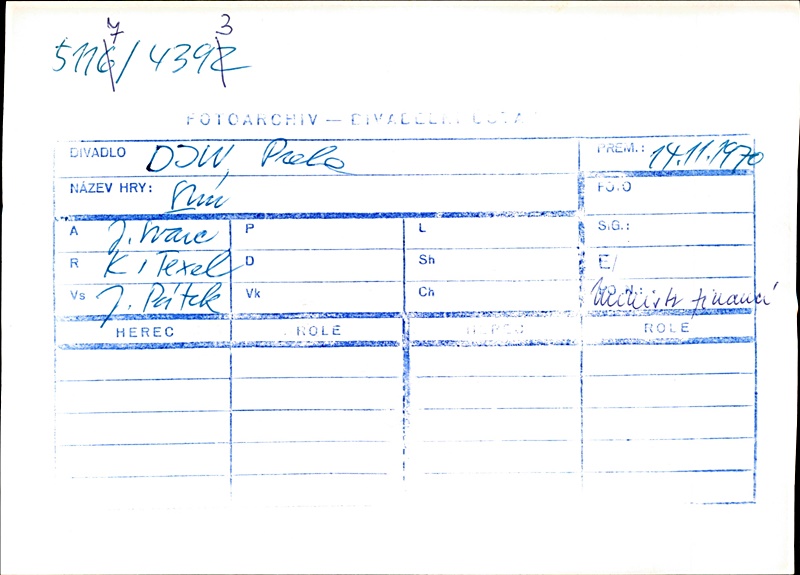 7 3
5116/4392
FOTOARCHIV — DIVADELNÍ ÚSTAV
DIVADLO DJW, Praha PREM.: 14.11.1970
NÁZEV HRY: Stín FOTO
A J. Švarc P L S.G.:
R K. Texel D Sh E/
Vs J. Pátek Vk Ch
Ministr financí
HEREC ROLE HEREC ROLE